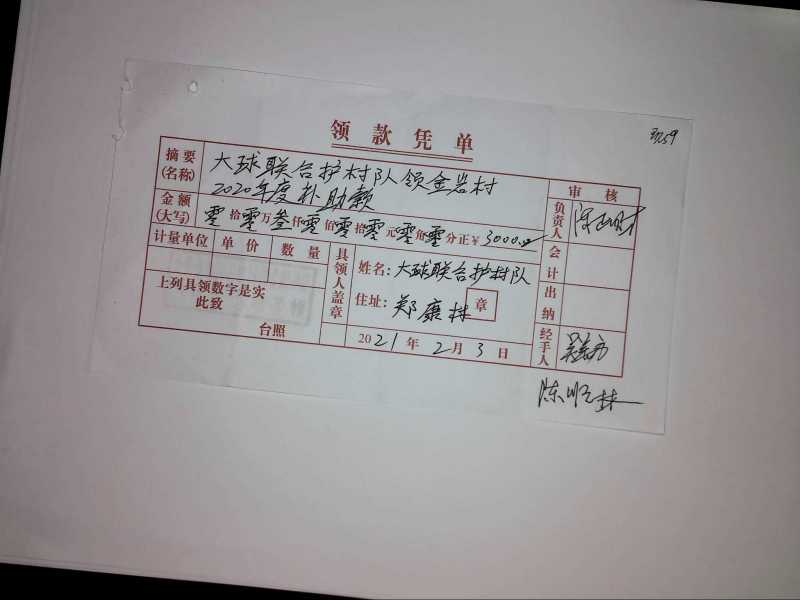 领款凭单
摘要(名称) 大球联合护村队领金岩村
2020年度补助款
金额(大写) 零拾零万叁仟零佰零拾零元零角零分正¥3000.00
计量单位 单价 数量
上列具领数字是实
此致
台照
具领人盖章
姓名:大球联合护村队
住址:郑康林 章
2021年2月3日
审核
负责人
会计
出纳
经手人
陈顺林